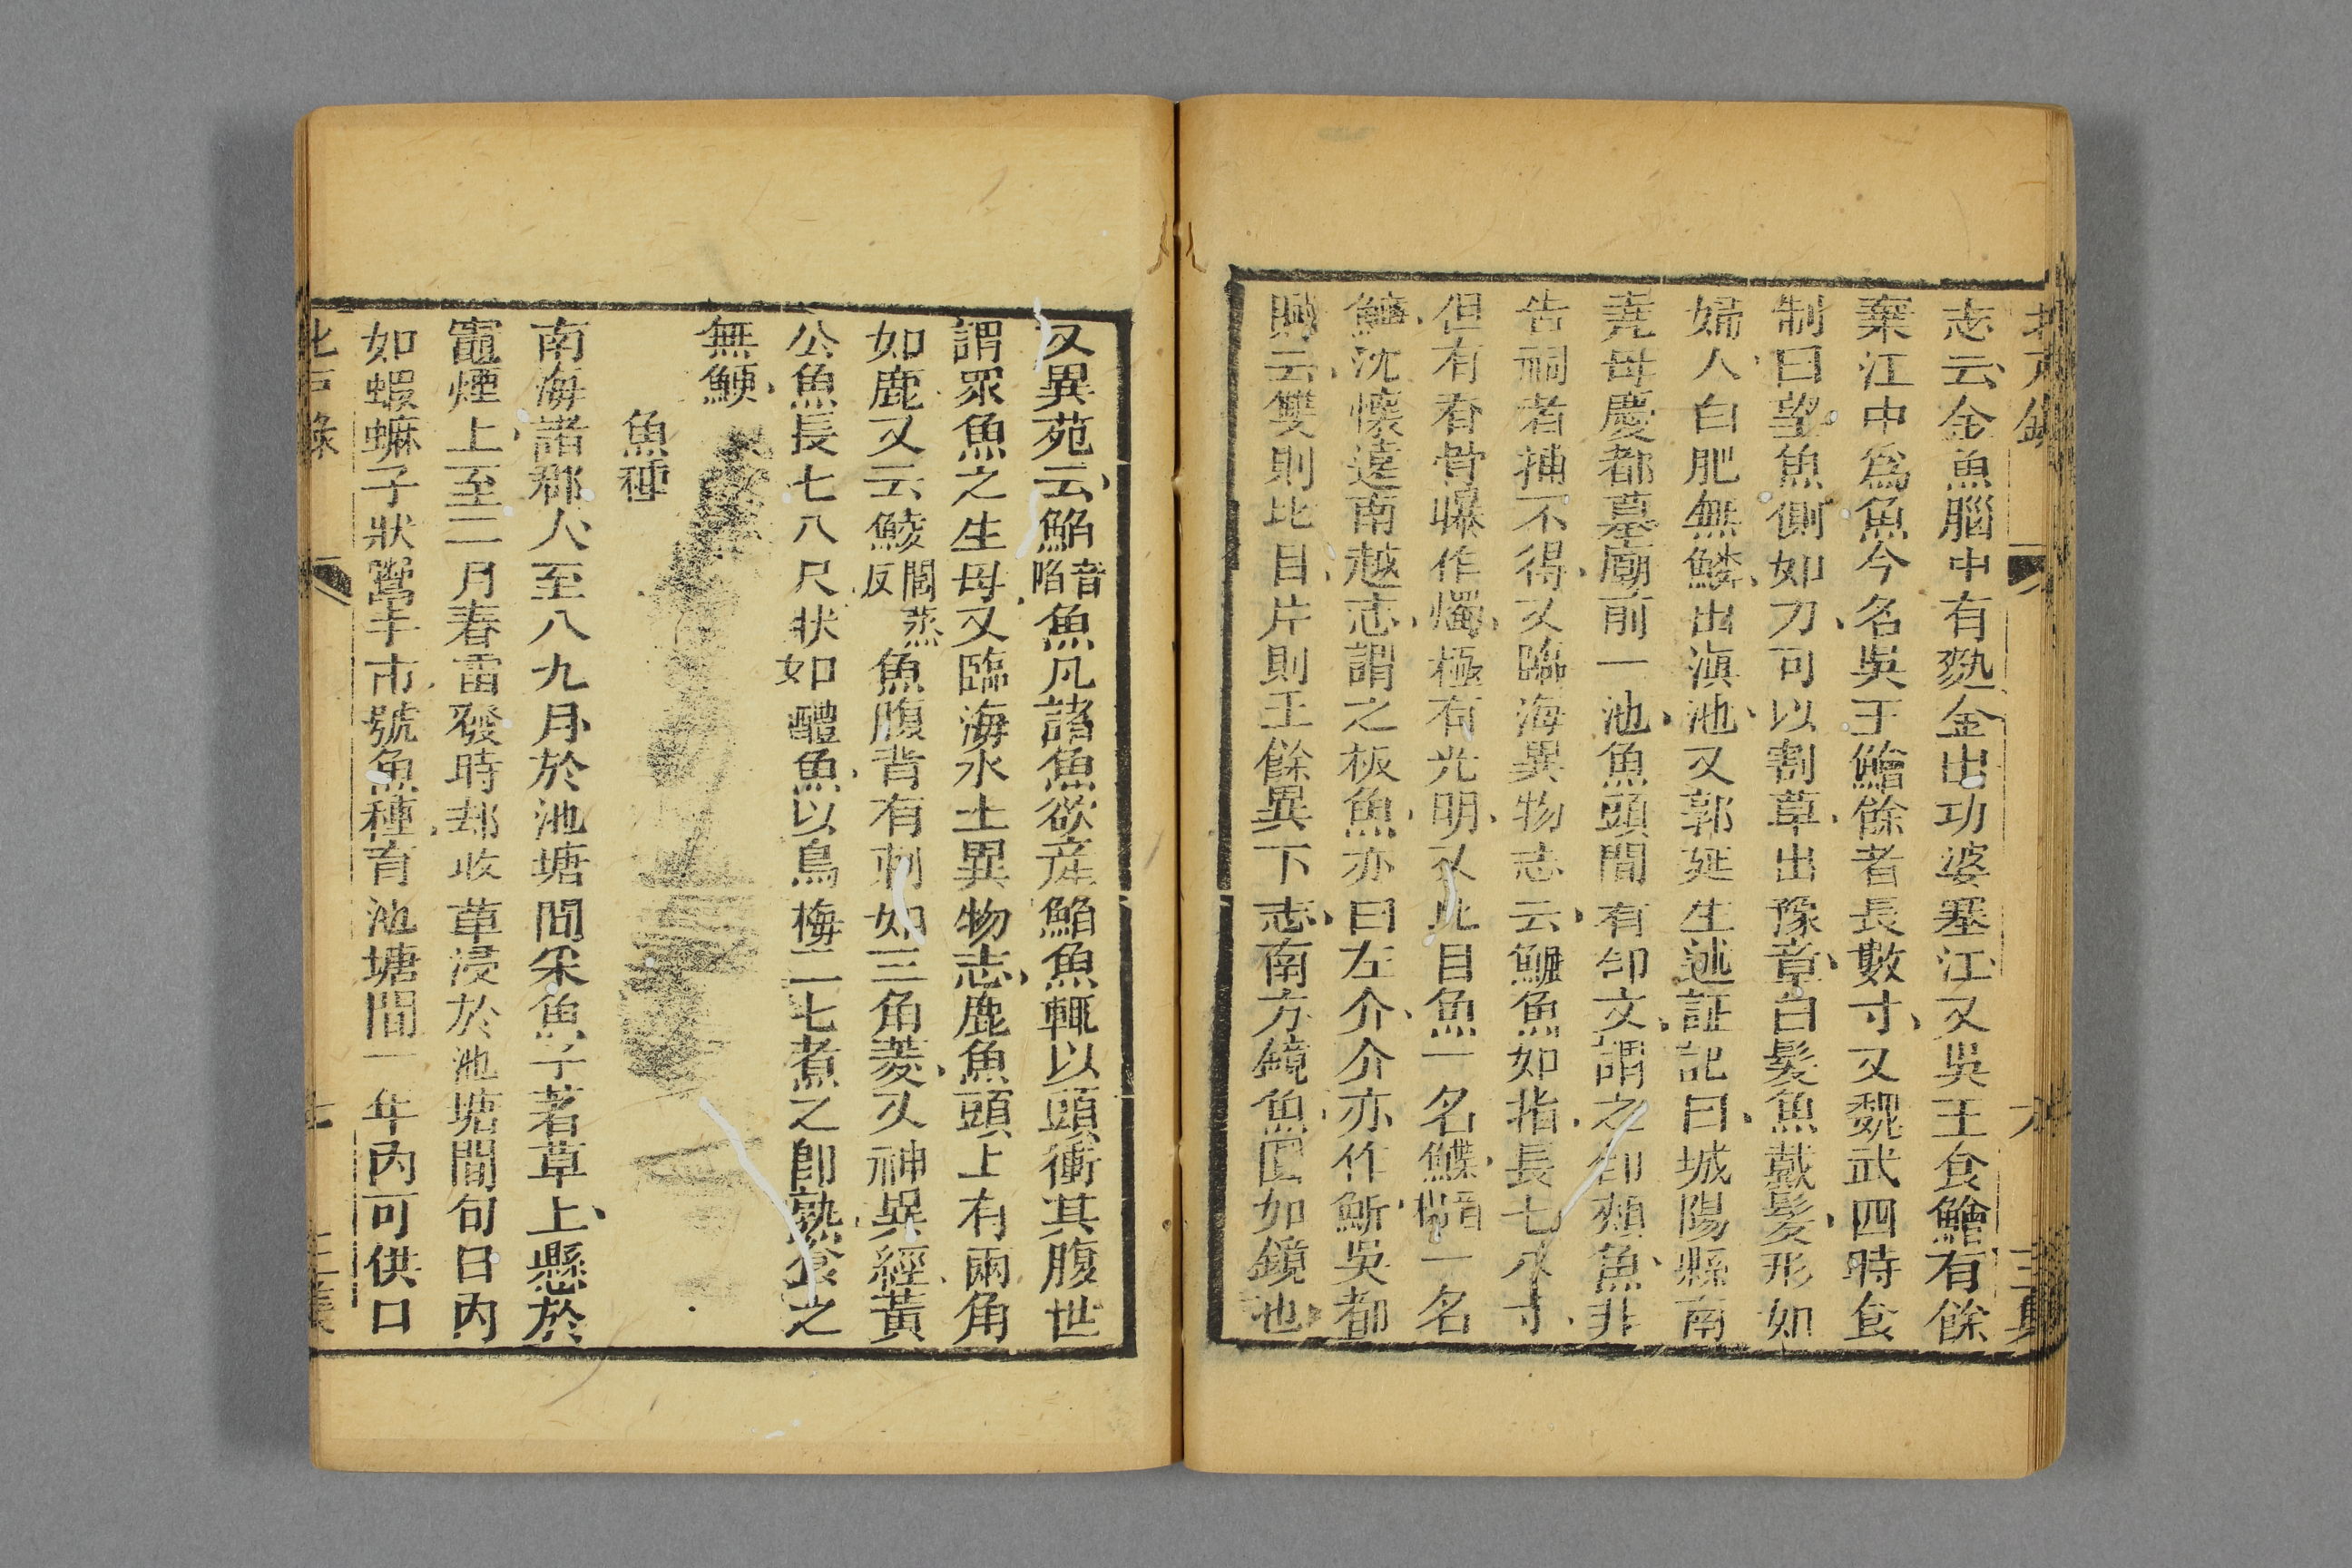 志云金魚腦中有麩金出功婆塞江又吳王食鱠有餘
棄江中爲魚今名吳王鱠餘者長數寸又魏武四時食
制曰望魚側如刀可以割草出豫章自髮魚戴髮形如
婦人白肥無鱗出滇池又郭延生述証記曰城陽縣南
堯母慶都墓廟前一池魚頭間有印文謂之印頰魚非
告祠者捕不得又臨海異物志云䱟魚如指長七八寸
但有脊骨曝作燭極有光明又比目魚一名鰈音榻一名
鰜沈懷遠南越志謂之板魚亦曰左介介亦作魪吳都
賦云雙則比目片則王餘異下志南方鏡魚圓如鏡也
又異苑云鮥音陷魚凡諸魚欲產鮥魚輒以頭衝其腹世
謂眾魚之生母又臨海水土異物志鹿魚頭上有兩角
如鹿又云鯪閭蒸反魚腹背有刺如三角菱又神異經黃
公魚長七八尺狀如醴魚以烏梅二七煮之卽熟食之
無鯁
魚種
南海諸郡人至八九月於池塘間采魚子著草上懸於
竈煙上至二月春雷發時却收草浸於池塘間旬日內
如蝦蟆子狀鬻于市號魚種育池塘間一年內可供口
北戶錄 七 三集